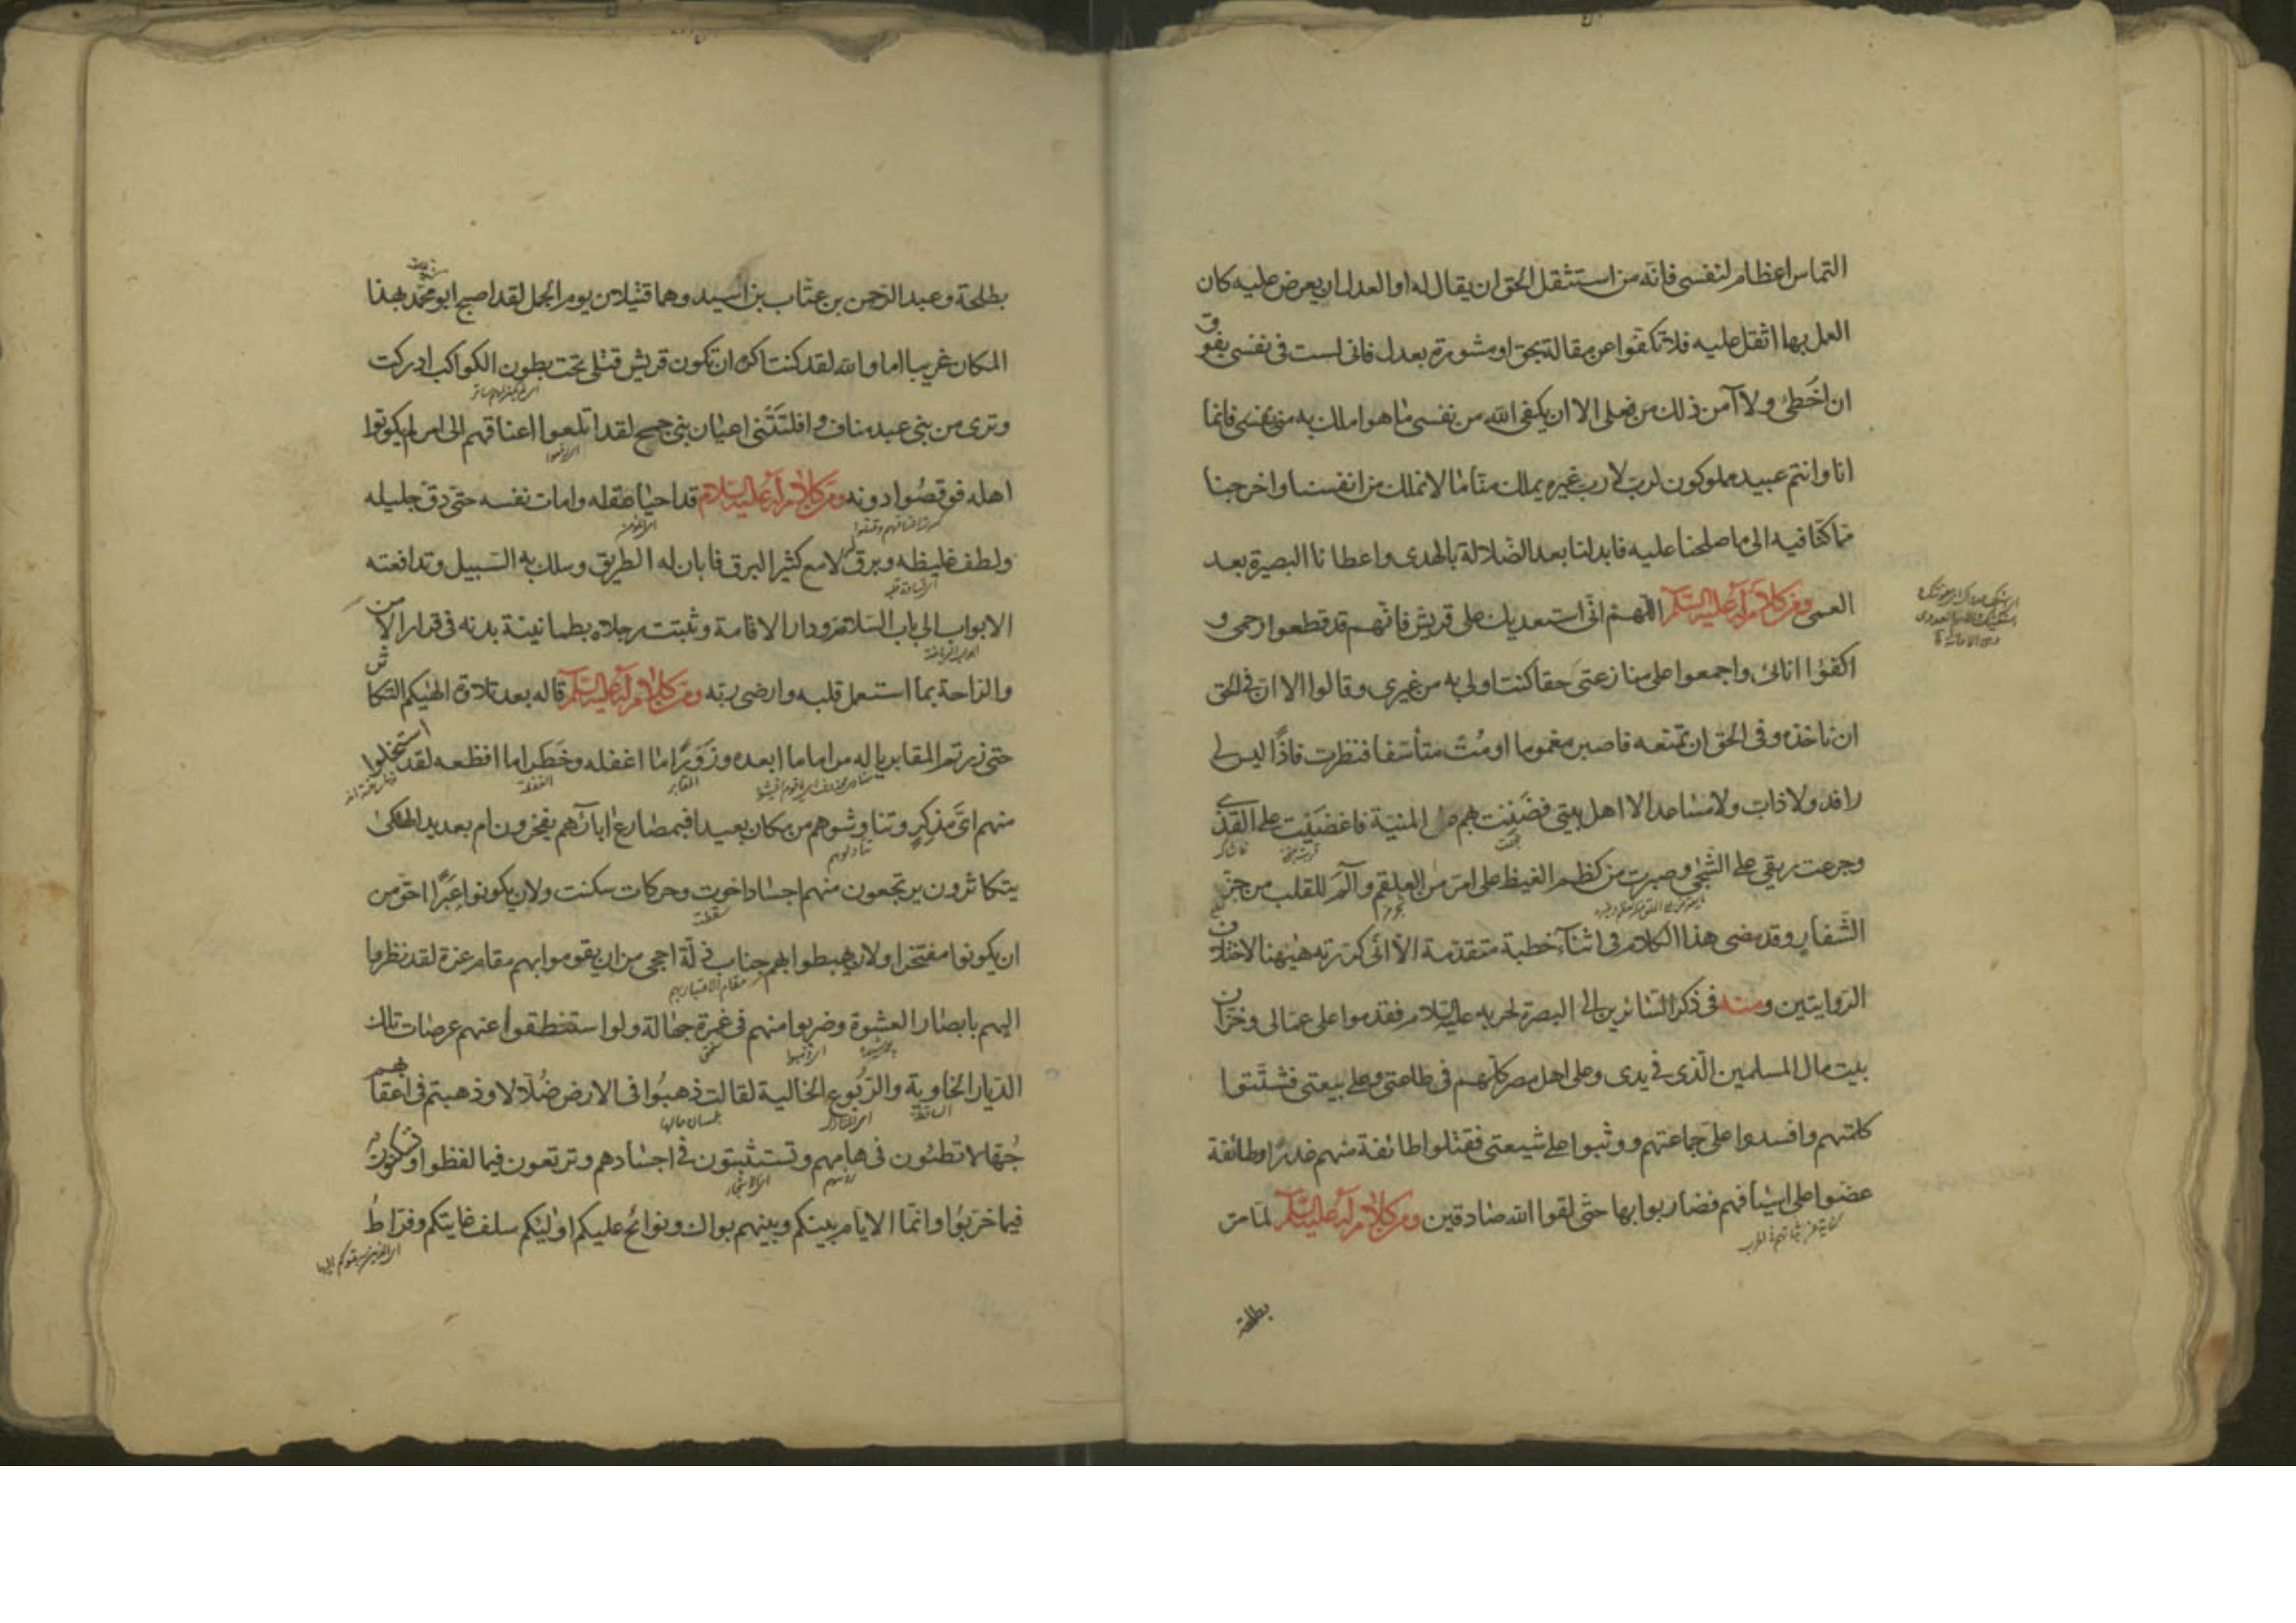 التماس اعظام لنفسى فانّه من استثقل الحق ان يقال له او العدل ان يعرض عليه كان
العمل بهما اثقل عليه فلا تكفّوا عن مقالة بحق او مشورة بعدل فانى لست فى نفسى بفوق
ان اخطئ ولا آمن ذلك من فعلى الا ان يكفى الله من نفسى ما هو املك به منى بنفسى فانما
انا وانتم عبيد مملوكون لرب لا رب غيره يملك منّا ما لا نملك من انفسنا واخرجنا
مما كنّا فيه الى ما صلحنا عليه فابدلنا بعد الضلالة بالهدى واعطانا البصيرة بعد
العمى ومن كلام له عليه السلام اللهم انّى استعديك على قريش فانّهم قد قطعوا رحمى و
اكفؤا انائى واجمعوا على منازعتى حقا كنت اولى به من غيرى وقالوا الا ان فى الحق
ان ناخذه وفى الحق ان تمنعه فاصبر مغموما او مُت متأسّفا فنظرت فاذًا ليس لى
رافد ولا ذاب ولا مساعد الا اهل بيتى فضننت بهم عن المنية فاغضيت على القذى
وجرعت ريقى على الشجى وصبرت من كظم الغيظ على امرّ من العلقم وآلم للقلب من حزّ
الشفار وقد مضى هذا الكلام فى اثناء خطبة متقدمة الا انى كررته هيهنا لاختلاف
الروايتين ومنه فى ذكر السّائرين الى البصرة لحربه عليه السلام فقدموا على عمالى وخزان
بيت مال المسلمين الّذى فى يدى وعلى اهل مصر كلّهم فى طاعتى وعلى بيعتى فشتّتوا
كلمتهم وافسدوا على جماعتهم ووثبوا على شيعتى فقتلوا طائفة منهم غدرًا وطائفة
عضّوا على اسيافهم فضاربوا بها حتى لقوا الله صادقين ومن كلام له عليه السلام لمّا مرّ
بطلحة
بطلحة وعبد الرّحمن بن عتّاب بن اسيد وهما قتيلان يوم الجمل لقد اصبح ابو محمّد بهذا
المكان غريبا اما والله لقد كنت اكره ان تكون قريش قتلى تحت بطون الكواكب ادركت
وترى من بنى عبد مناف وافلتتنى اعيان بنى جمح لقد اتلعوا اعناقهم الى امر لم يكونوا
اهله فوقصوا دونه ومن كلام له عليه السلام قد احيا عقله وامات نفسه حتى دقّ جليله
ولطف غليظه وبرق له لامع كثير البرق فابان له الطريق وسلك به السّبيل وتدافعته
الابواب الى باب السّلامة ودار الاقامة وثبتت رجلاه بطمانينة بدنه فى قرار الامن
والراحة بما استعمل قلبه وارضى ربّه ومن كلام له عليه السلام قاله بعد تلاوة الهيكم التكاثر
حتى زرتم المقابر يا له مراما ما ابعده وزَوَرًا ما اغفله وخَطَرا ما افظعه لقد استخلوا
منهم اىّ مذكر وتناوشوهم من مكان بعيد افبمصارع ابائهم يفخرون ام بعديد الهلكى
يتكاثرون يرتجعون منهم اجسادا خوت وحركات سكنت ولان يكونوا عِبَرًا احق من
ان يكونوا مفتخرا ولان يهبطوا بهم جناب ذلّة احجى من ان يقوموا بهم مقام عزة لقد نظروا
اليهم بابصار العشوة وضربوا منهم فى غمرة جهالة ولو استنطقوا عنهم عرصات تلك
الديار الخاوية والربُوع الخالية لقالت ذهبُوا فى الارض ضُلّالا وذهبتم فى اعقابهم
جُهّالا تطئون فى هامهم وتستثبتون فى اجسادهم وترتعون فيما لفظوا وتسكنون
فيما خربُوا وانما الايام بينكم وبينهم بواك ونوائح عليكم اولئكم سلف غايتكم وفرّاط